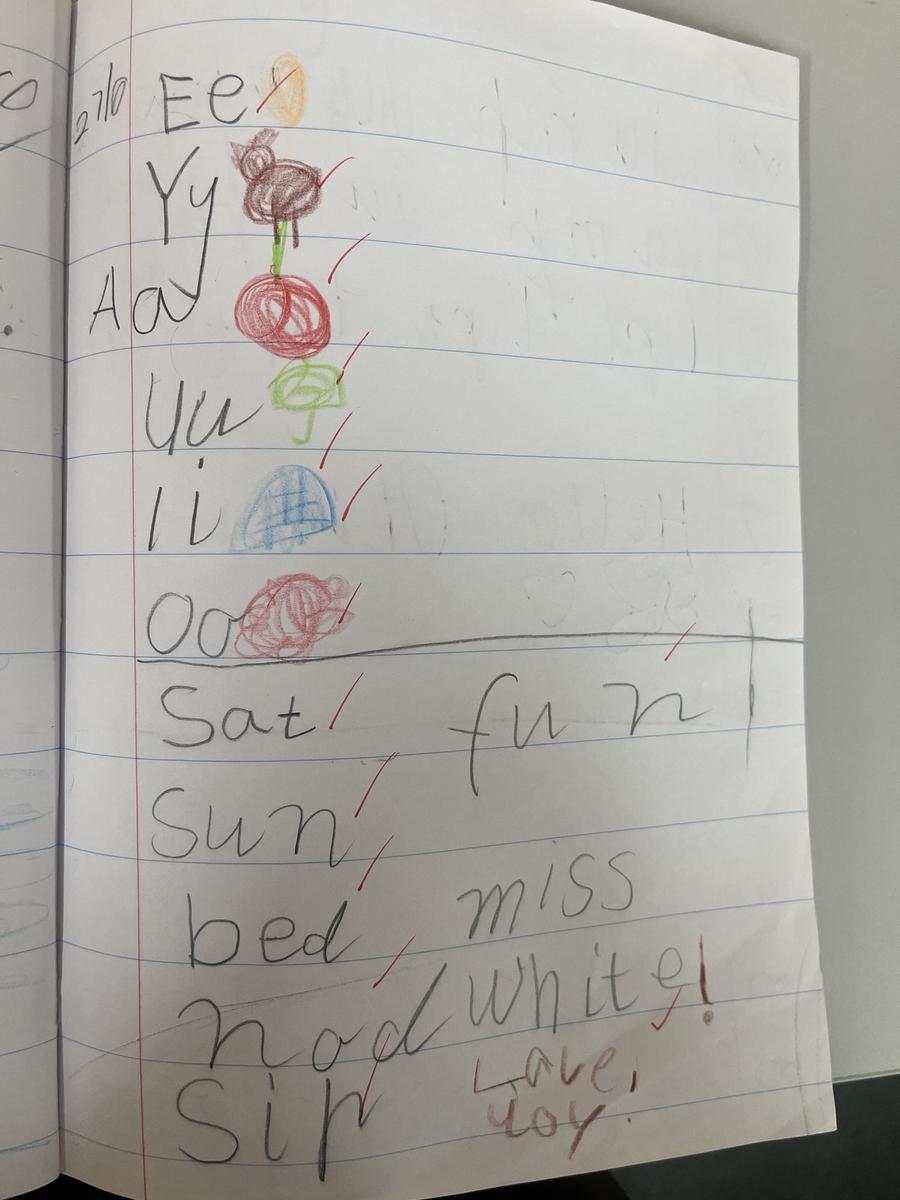 27/8
Ee
Yy
Aa
Uu
Ii
Oo
Sat fun!
Sun
bed miss
nod White!
Sip Love,
yoy.